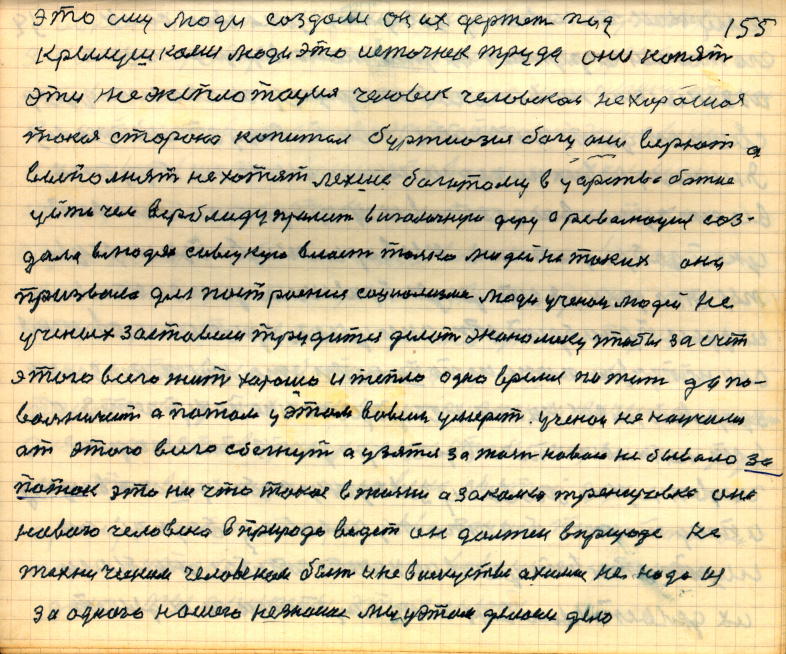 это силу люди создали он их держет под 155
крылушками люди это источнек труда они копят
эти не эксплотация человек человеком нехорашая
такая сторона копитал буржиозия богу они верют а
выполнят не хотят легше богатому в царство божие
уйти чем верблюду пролест в иголочную дыру а революция соз-
дала в людях совецкую власт только людей не таких она
призвала для построения социолизма люди ученои людей не
ученых заставели трудится делат экономику чтобы за счет
этого всего жит хорошо и тепло одно время пожит да по-
вольничит а потом у этом вовсем умерет. ученои не научили
от этого всего сбегнут а узятся за того новою не бывало за
поток это ни что такое в жизни а закалка тренировка она
новаго человека в природе ведет он должен в природе не
техническим человеком быт и не в искустве а химии не надо из
за одного нашего незнание мы у этом делаем дело